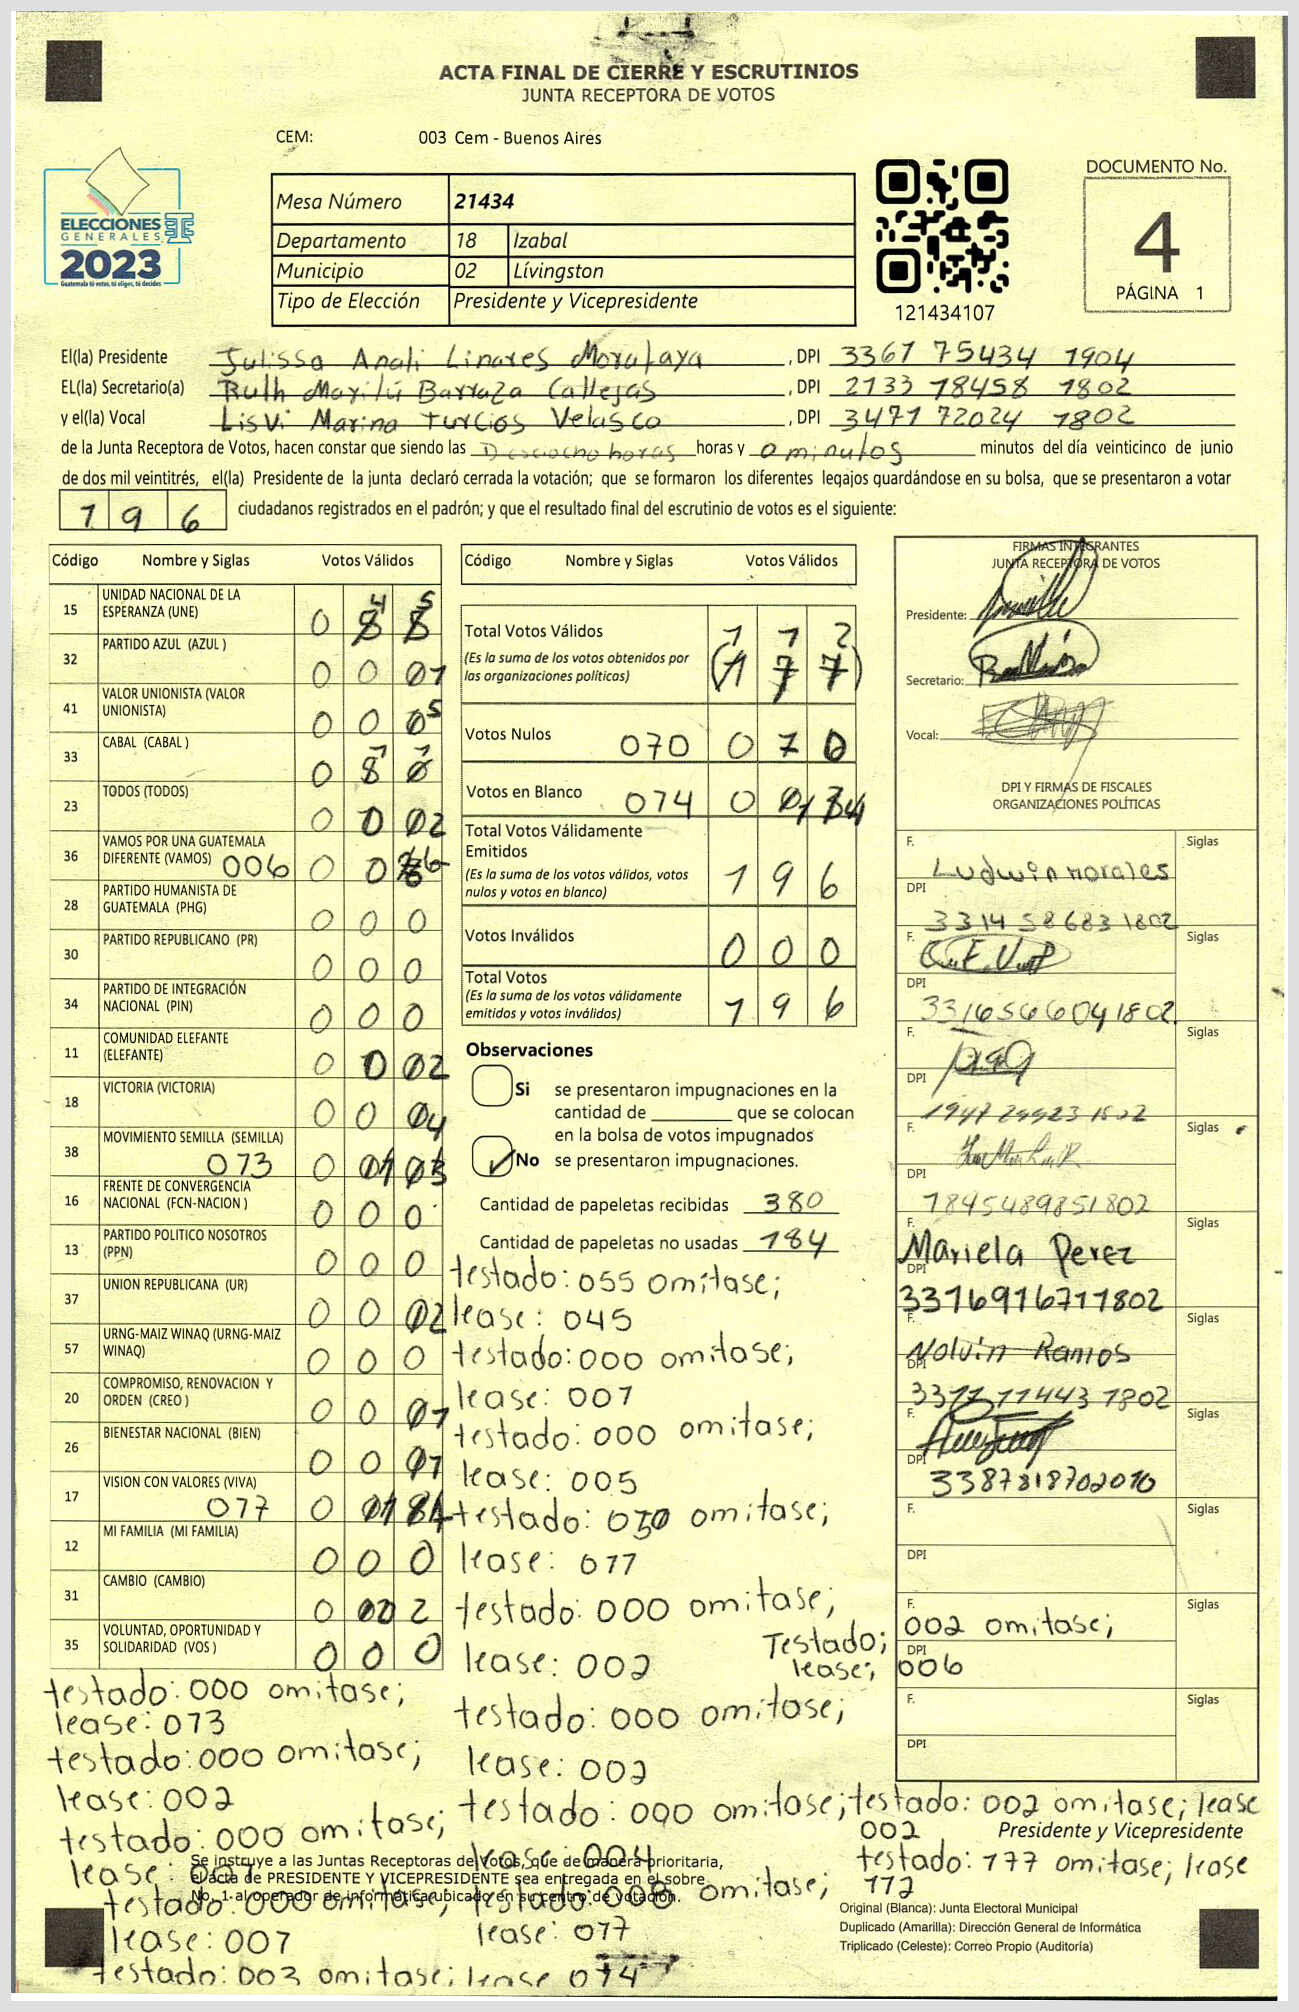 ACTA FINAL DE CIERRE Y ESCRUTINIOS
JUNTA RECEPTORA DE VOTOS
CEM: 003 Cem - Buenos Aires
DOCUMENTO No.
4
PÁGINA 1
ELECCIONES
GENERALES
2023
Guatemala tú votas, tú eliges, tú decides
Mesa Número 21434
Departamento 18 Izabal
Municipio 02 Lívingston
Tipo de Elección Presidente y Vicepresidente
121434107
El(la) Presidente Julissa Anali Linares Morataya , DPI 3361 75434 1904
EL(la) Secretario(a) Ruth Marilú Barraza Callejas , DPI 2133 18458 1802
y el(la) Vocal Lisvi Marina Turcios Velasco , DPI 3471 72024 1802
de la Junta Receptora de Votos, hacen constar que siendo las Dieciocho horas horas y 0 minutos minutos del día veinticinco de junio
de dos mil veintitrés, el(la) Presidente de la junta declaró cerrada la votación; que se formaron los diferentes legajos guardándose en su bolsa, que se presentaron a votar
196 ciudadanos registrados en el padrón; y que el resultado final del escrutinio de votos es el siguiente:
Código Nombre y Siglas Votos Válidos
15 UNIDAD NACIONAL DE LA ESPERANZA (UNE) 0 4 5
32 PARTIDO AZUL (AZUL ) 0 0 01
41 VALOR UNIONISTA (VALOR UNIONISTA) 0 0 05
33 CABAL (CABAL ) 0 1 1
23 TODOS (TODOS) 0 0 02
36 VAMOS POR UNA GUATEMALA DIFERENTE (VAMOS) 006 0 0 6
28 PARTIDO HUMANISTA DE GUATEMALA (PHG) 0 0 0
30 PARTIDO REPUBLICANO (PR) 0 0 0
34 PARTIDO DE INTEGRACIÓN NACIONAL (PIN) 0 0 0
11 COMUNIDAD ELEFANTE (ELEFANTE) 0 0 02
18 VICTORIA (VICTORIA) 0 0 04
38 MOVIMIENTO SEMILLA (SEMILLA) 013 0 01 03
16 FRENTE DE CONVERGENCIA NACIONAL (FCN-NACION ) 0 0 0
13 PARTIDO POLITICO NOSOTROS (PPN) 0 0 0
37 UNION REPUBLICANA (UR) 0 0 02
57 URNG-MAIZ WINAQ (URNG-MAIZ WINAQ) 0 0 0
20 COMPROMISO, RENOVACION Y ORDEN (CREO ) 0 0 01
26 BIENESTAR NACIONAL (BIEN) 0 0 01
17 VISION CON VALORES (VIVA) 017 0 01
12 MI FAMILIA (MI FAMILIA) 0 0 0
31 CAMBIO (CAMBIO) 0 00 2
35 VOLUNTAD, OPORTUNIDAD Y SOLIDARIDAD (VOS ) 0 0 0
Código Nombre y Siglas Votos Válidos
Total Votos Válidos 1 1 2
(Es la suma de los votos obtenidos por las organizaciones políticas) (177)
Votos Nulos 070 0 7 0
Votos en Blanco 014 0 01 4
Total Votos Válidamente Emitidos
(Es la suma de los votos válidos, votos nulos y votos en blanco) 1 9 6
Votos Inválidos 0 0 0
Total Votos
(Es la suma de los votos válidamente emitidos y votos inválidos) 1 9 6
Observaciones
Si se presentaron impugnaciones en la
cantidad de ________ que se colocan
en la bolsa de votos impugnados
No se presentaron impugnaciones.
Cantidad de papeletas recibidas 380
Cantidad de papeletas no usadas 184
testado: 055 omitase;
lease: 045
testado: 000 omitase;
lease: 001
testado: 000 omitase;
lease: 005
testado: omitase;
lease: 011
testado: 000 omitase;
lease: 002
testado: 000 omitase;
lease: 002
testado: 000 omitase;
lease: 004
testado: 008 omitase;
lease: 017
FIRMAS INTEGRANTES
JUNTA RECEPTORA DE VOTOS
Presidente:
Secretario:
Vocal:
DPI Y FIRMAS DE FISCALES
ORGANIZACIONES POLÍTICAS
F. Ludwin Morales Siglas
DPI 3314 58683 1802
F. Siglas
DPI 3316566041802
F. Siglas
DPI
F. Siglas
DPI 1845489851802
F. Mariela Perez Siglas
DPI 3316916711802
F. Nolvin Ramos Siglas
DPI 3311 11443 1802
F. Siglas
DPI 3387818702010
F. Siglas
DPI
F. Siglas
Testado; 002 omitase;
DPI
lease; 006
F. Siglas
DPI
testado: 000 omitase;
lease: 013
testado: 000 omitase;
lease: 002
testado: 000 omitase;
lease: 001
testado: 000 omitase;
lease: 001
testado: 003 omitase; lease 014
testado: 002 omitase; lease
002
Presidente y Vicepresidente
testado: 177 omitase; lease
112
Se instruye a las Juntas Receptoras de Votos, que de manera prioritaria,
el acta de PRESIDENTE Y VICEPRESIDENTE sea entregada en el sobre
No. 1 al operador de informática ubicado en su centro de votación.
Original (Blanca): Junta Electoral Municipal
Duplicado (Amarilla): Dirección General de Informática
Triplicado (Celeste): Correo Propio (Auditoría)